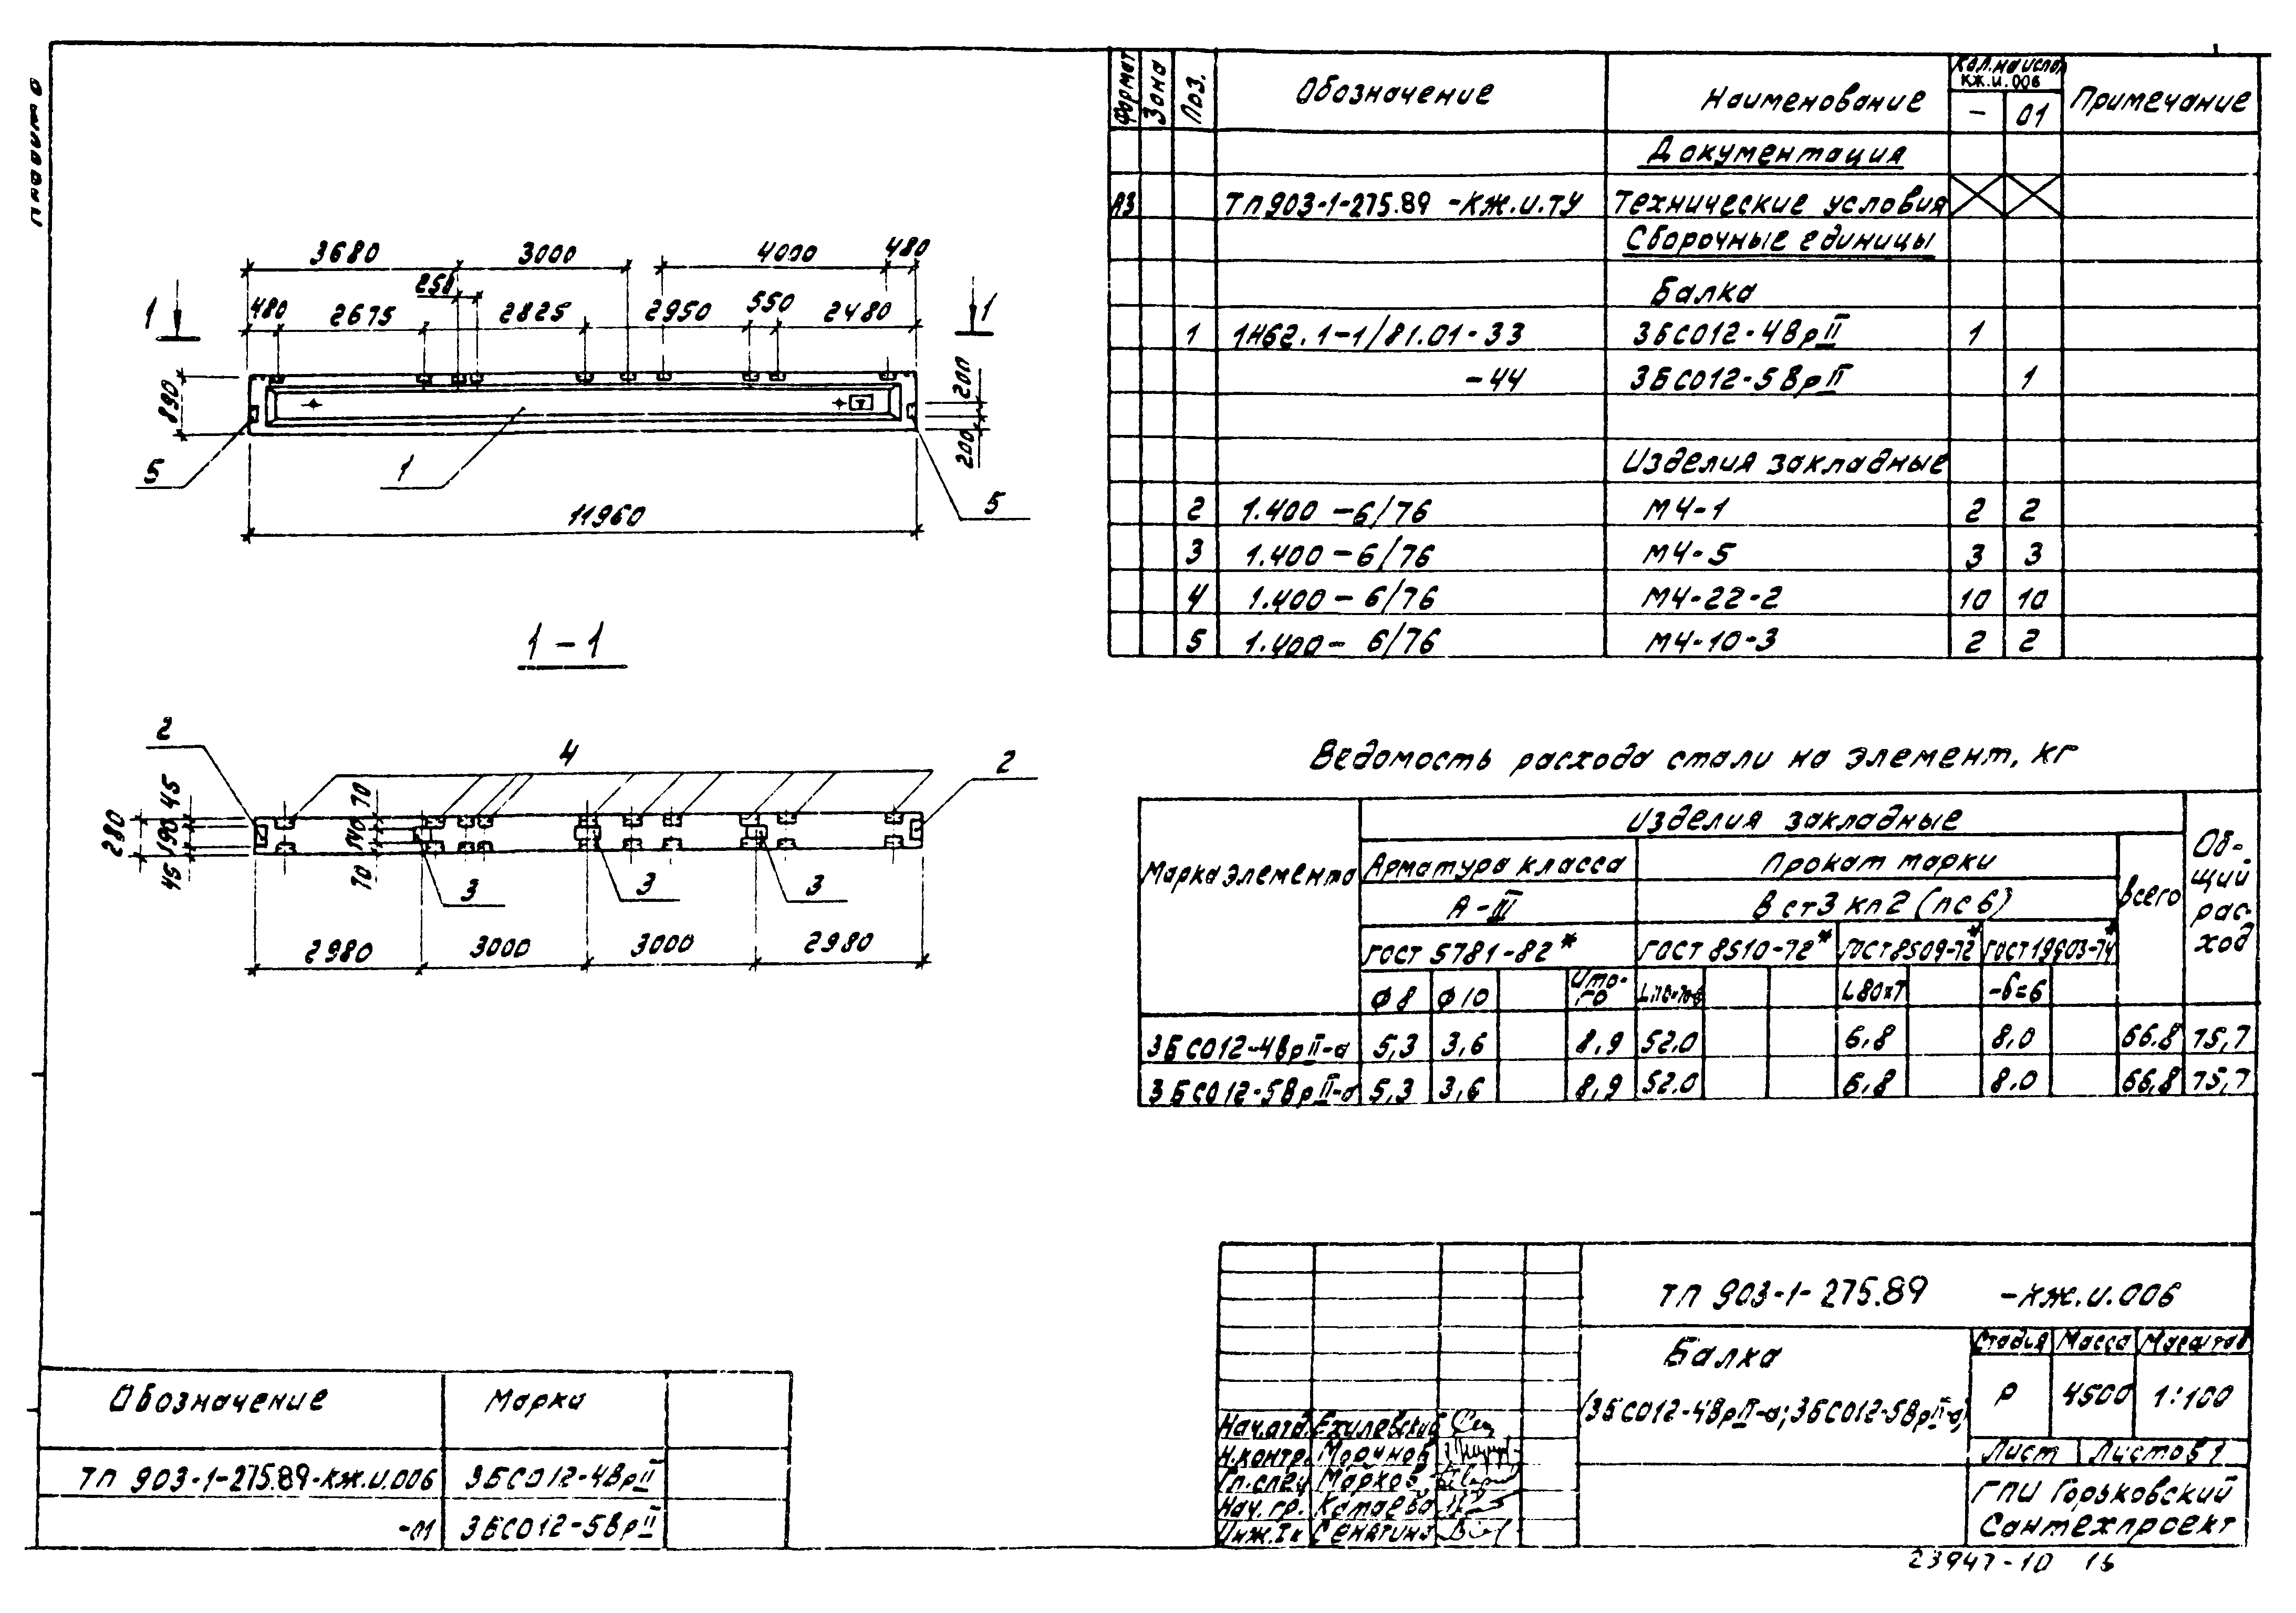 Формат Зона Поз. Обозначение Наименование Кол. на испол. КЖ.И.006 Примечание
- 01
Документация
А3 ТП903-1-275.89 -КЖ.И.ТУ Технические условия
Сборочные единицы
Балка
1 1462.1-1/81.01-33 3БСО12-4ВрII 1
-44 3БСО12-5ВрII 1
Изделия закладные
2 1.400-6/76 МЧ-1 2 2
3 1.400-6/76 МЧ-5 3 3
4 1.400-6/76 МЧ-22-2 10 10
5 1.400-6/76 МЧ-10-3 2 2
3680 3000 4000 480
250
480 2675 2825 2950 550 2480
1 1
890 200
200
5 1 5
11960
1-1
2 4 2
280 45 190 45 70 140 70
3 3 3
2980 3000 3000 2980
Ведомость расхода стали на элемент, кг
Марка элемента Изделия закладные Общий расход
Арматура класса Прокат марки Всего
А-III В ст3 кп2 (пс6)
ГОСТ 5781-82* ГОСТ 8510-72* ГОСТ 8509-72* ГОСТ 19903-74*
ϕ8 ϕ10 Итого L80×7 -δ=6
3БСО12-4ВрII-а 5,3 3,6 8,9 52.0 6.8 8.0 66.8 75,7
3БСО12-5ВрII-а 5,3 3,6 8,9 52.0 6.8 8.0 66,8 75,7
ТП 903-1-275.89 -КЖ.И.006
Балка
(3БСО12-4ВрII-а; 3БСО12-5ВрII-а)
Стадия Масса Масштаб
Р 4500 1:100
Лист Листов 1
ГПИ Горьковский
Сантехпроект
Нач.отд.
Н.контр.
Гл.спец. Марков
Нач.гр. Катаева
Инж.Iк Сенятина
Обозначение Марка
ТП 903-1-275.89-КЖ.И.006 3БСО12-4ВрII
-01 3БСО12-5ВрII
23947-10 16